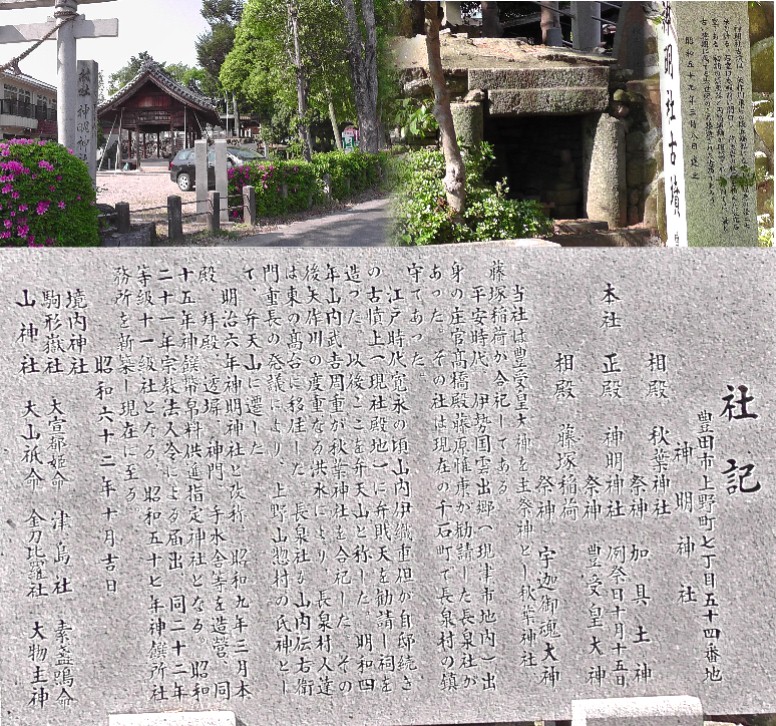 村社 神明神社
神明社古墳
昭和五十九年三月
社記
豊田市上野町七丁目五十四番地
神明神社
相殿 秋葉神社 祭神 加具土神
本社 正殿 神明神社 例祭日十月十五日
祭神 豊受皇大神
相殿 藤塚稲荷 祭神 宇迦御魂大神
当社は豊受皇大神を主祭神とし秋葉神社、
藤塚稲荷が合祀してある。
平安時代、伊勢国雲出郷(現津市地内)出
身の庄官高橋殿藤原惟康が勧請した長泉社が
あった。その社は現在の千石町で長泉村の鎮
守であった。
江戸時代寛永の頃山内伊織重恒が自邸続き
の古墳上(現社殿地)に弁財天を勧請し祠を
造った。以後ここを弁天山と称した。明和四
年山内武吉周重が秋葉神社を合祀した。その
後矢作川の度重なる洪水により、長泉村人達
は東の高台に移住した。長泉社も山内伝右衛
門重長の発議により、上野山惣村の氏神とし
て、弁天山に遷した。
明治六年神明神社と改称。昭和九年三月本
殿、拝殿、透塀、神門、手水舎等を造営、同
十五年神饌幣帛料供進指定神社となる。昭和
二十一年宗教法人令による届出、同二十二年
等級十一級社となる。昭和五十七年神饌所社
務所を新築し現在に至る。
昭和六十二年十月吉日
境内神社
駒形嶽社 大宜都姫命 津島社 素盞鳴命
山神社 大山祇命 金刀比羅社 大物主神